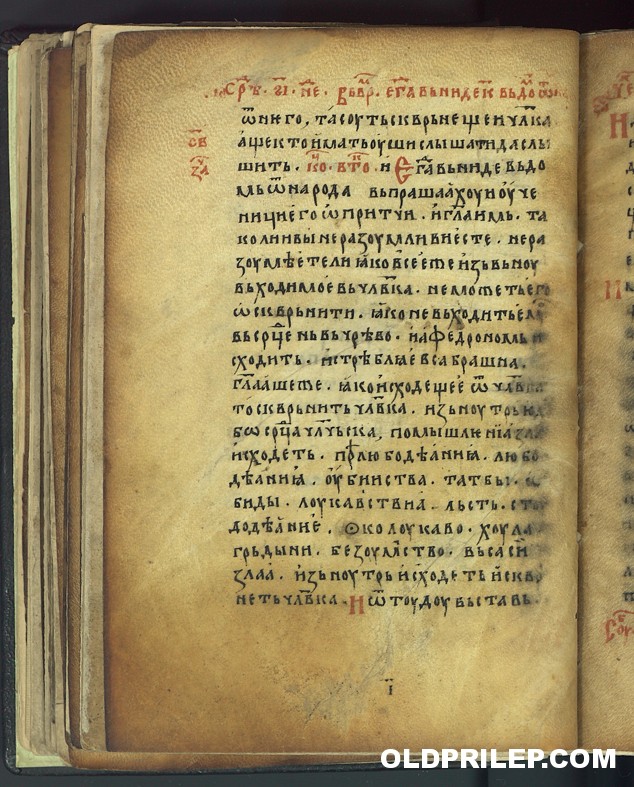 Срѣ · гı · не · Въвр · егда вьниде к вьдо ѿ
ѿ него, та соуть сквьрьнещеи чл҃ка
св аще кто имать оуши слышати да слы
за шить · ко · вто · и Егда вьниде вь до
мь ѿ народа вьпрашаахоу и оуче
ници его ѡ притчи · и гл҃а имь · та
ко ли и вы неразоумливи есте · не ра
зоумѣете ли ꙗко все еже изьвьноу
вьходимое вь чл҃вка · не можеть его
ѡсквьрьнити · ꙗко не вьходить ем
вь срц҃е нь вь чрѣво · и афедрономь и
сходить · истрѣблꙗе вса брашна ·
гл҃лаше же · ꙗко исходещее ѿ чл҃вка
то сквьрьнить чл҃вка · изьноутрь
бѡ срц҃а чл҃чьска, помышлениꙗ
исходеть · прѣлюбодѣаниꙗ · любо
дѣꙗниꙗ · оубииства · татбы ·
биды · лоукавьствиа · льсть ·
додѣание · ѻко лоукаво · хоула
грьдыни · безоумьство · вьса си
злаа · изьноутрь исходеть и скв
неть чл҃вка · И ѿтоудоу вьставь
ı
OLDPRILEP.COM